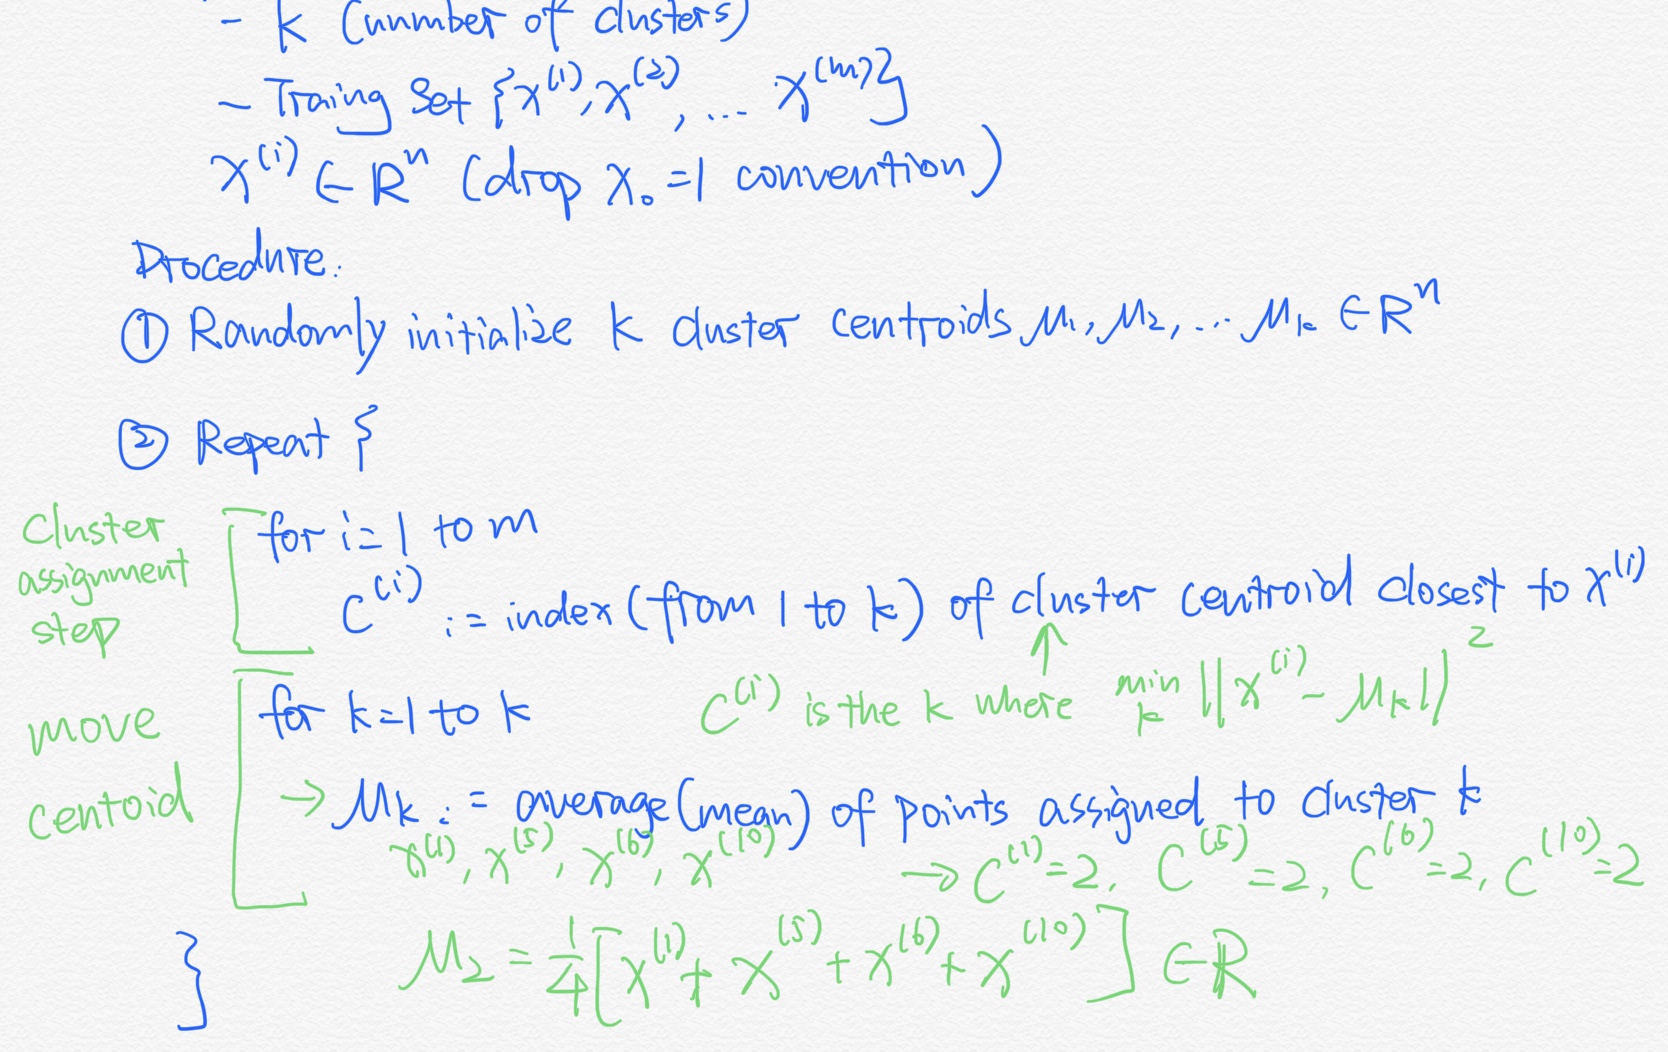 - k (number of clusters)
- Traing Set {x^(1), x^(2), ... x^(m)}
x^(i) ∈ R^n (drop x₀ = 1 convention)
Procedure:
① Randomly initialize k cluster centroids μ₁, μ₂, ... μ_k ∈ R^n
② Repeat {
Cluster assignment step
for i = 1 to m
C^(i) := index (from 1 to k) of cluster centroid closest to x^(i)
↑
C^(i) is the k where min_k ||x^(i) - μ_k||^2
move centoid
for k = 1 to k
→ μ_k := average (mean) of points assigned to cluster k
x^(1), x^(5), x^(6), x^(10) → C^(1) = 2, C^(5) = 2, C^(6) = 2, C^(10) = 2
μ₂ = 1/4 [x^(1) + x^(5) + x^(6) + x^(10)] ∈ R
}